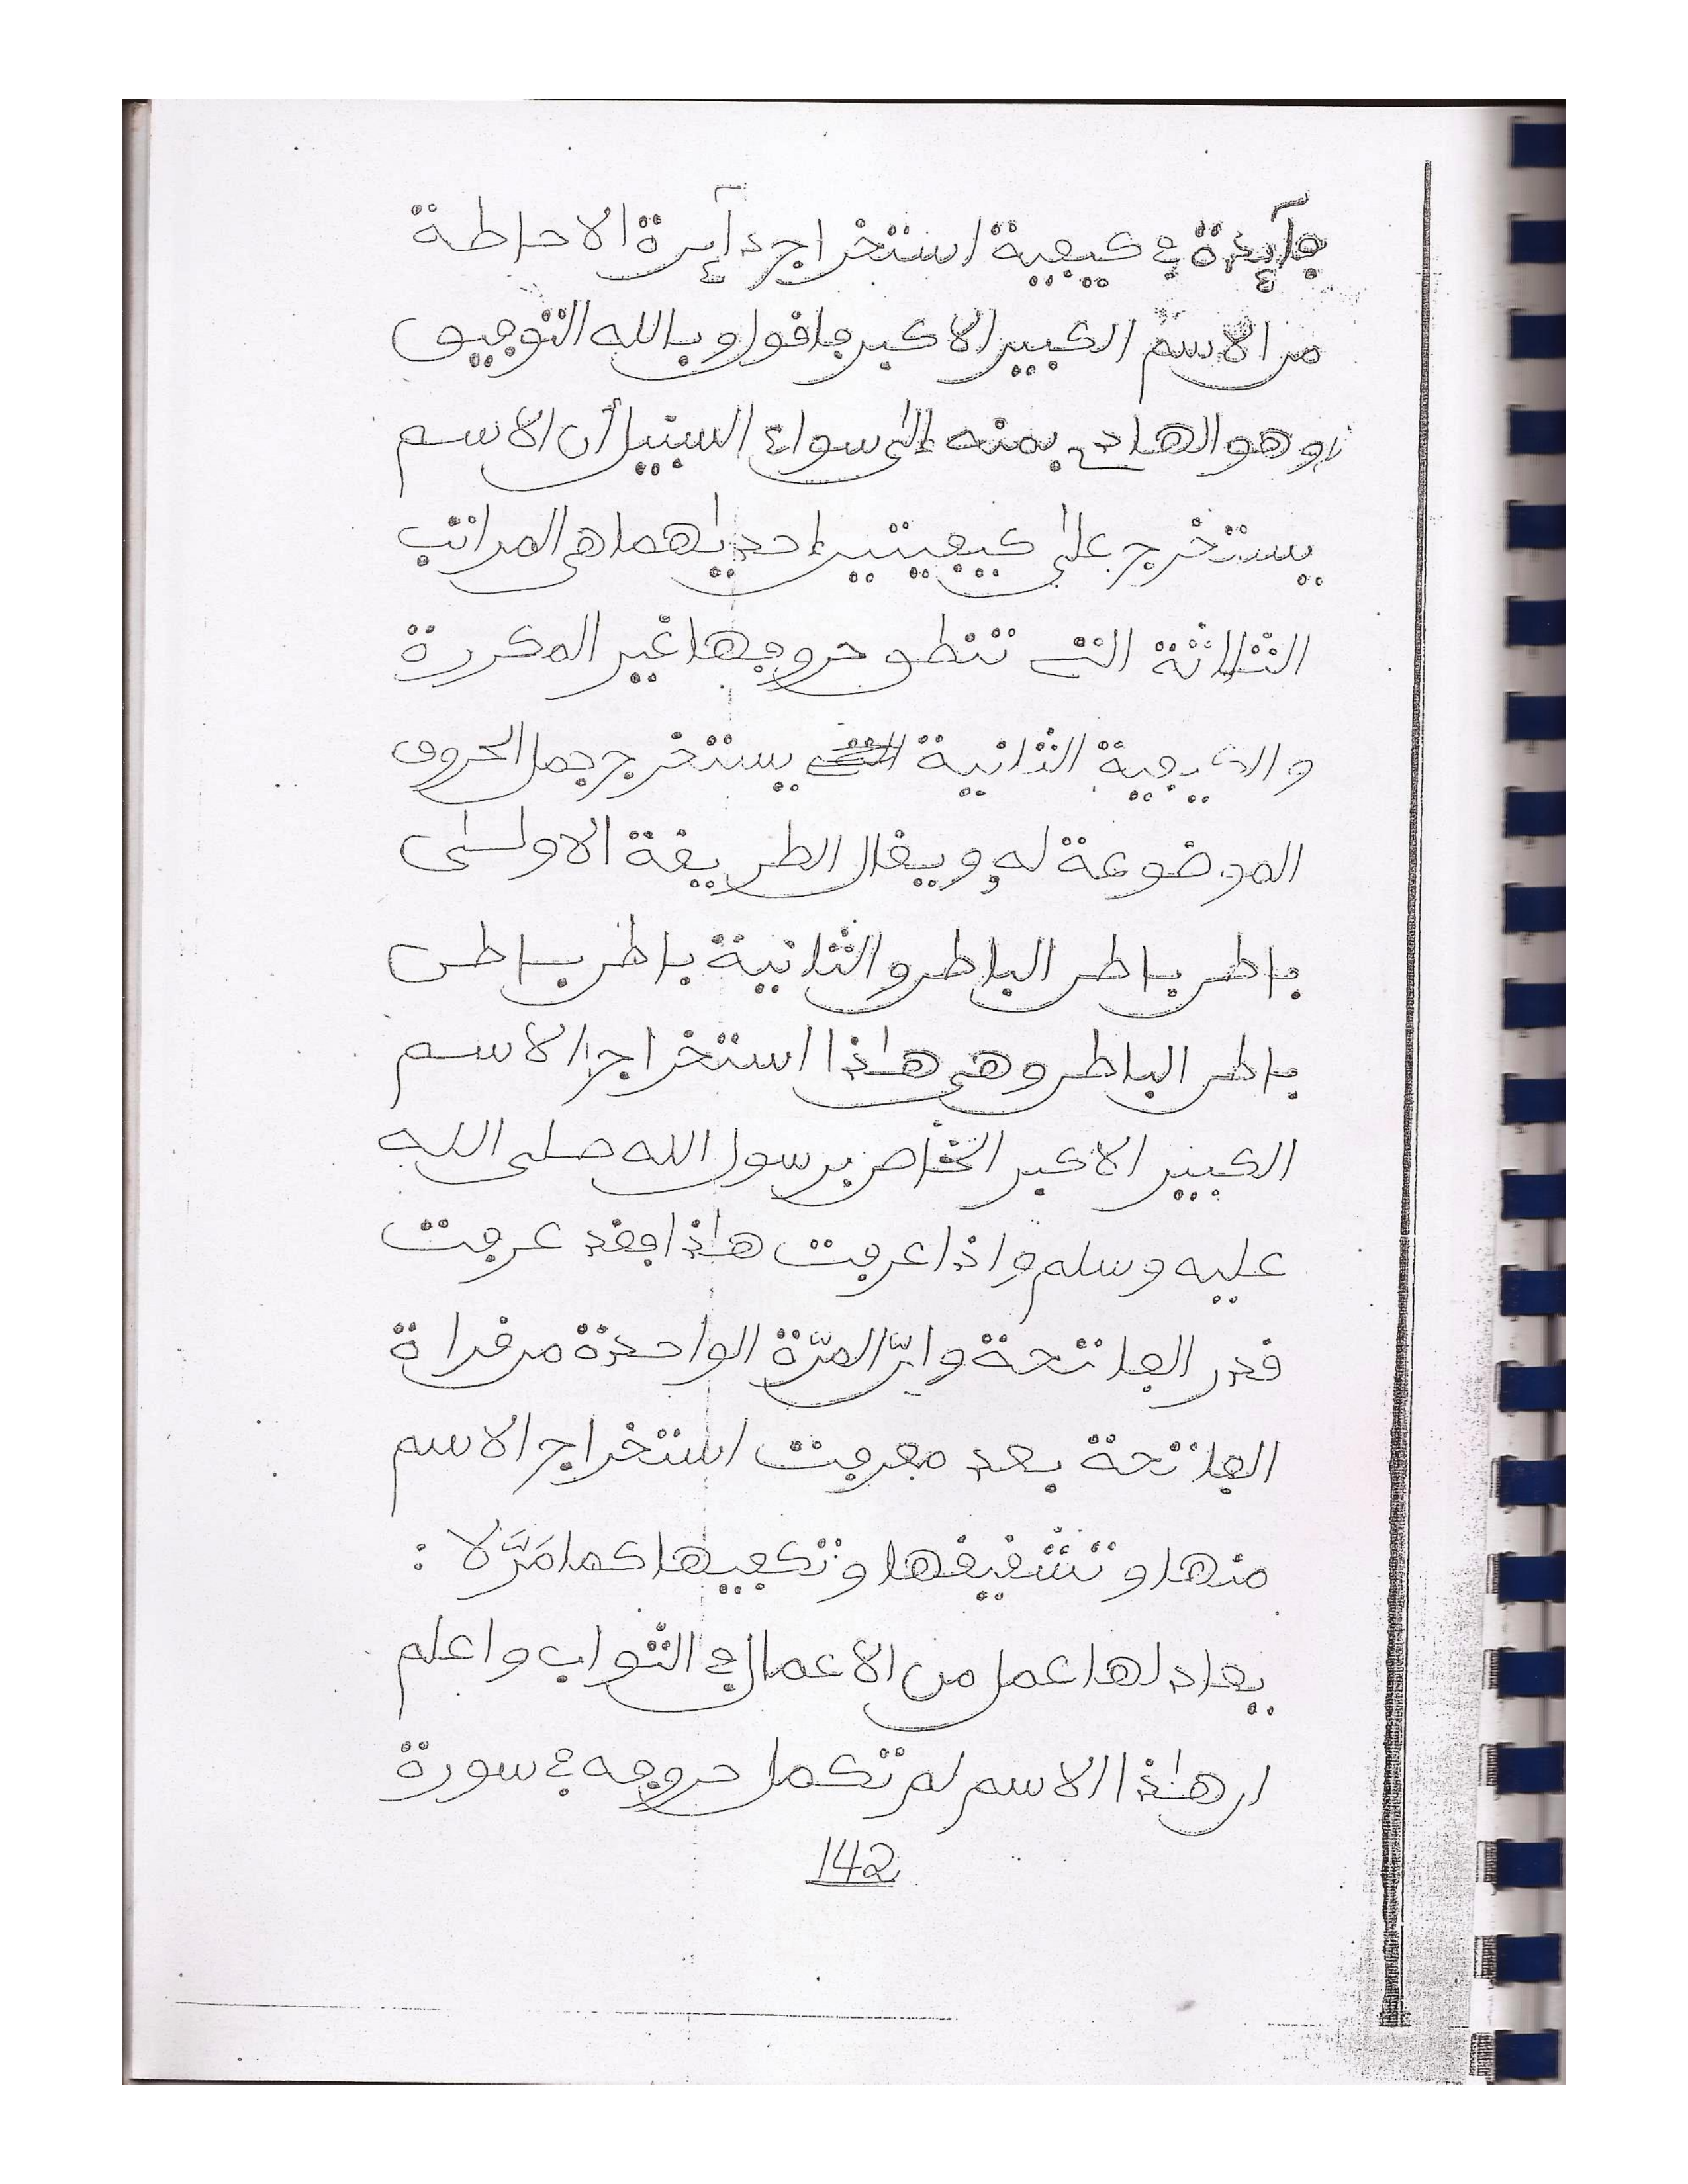 فآئدة في كيفية استخراج دآئرة الاحاطة
من الاسم الكبير الاكبر فاقول وبالله التوفيق
وهو الهادي بمنه إلى سواء السبيل أن الاسم
يستخرج على كيفيتين إحديهما هي المراتب
الثلاثة التي تنطق حروفها غير المكررة
والكيفية الثانية يستخرج جمل الحروف
الموضوعة له ويقال الطريقة الاولى
باطن باطن الباطن والثانية باطن باطن
باطن الباطن وهي هذا استخراج الاسم
الكبير الاكبر الخاص برسول الله صلى الله
عليه وسلم واذا عرفت هذا فقد عرفت
قدر الفاتحة وان المرّة الواحدة من قراة
الفاتحة بعد معرفت استخراج الاسم
منها وتشقيقها وتكعيبها كما مَرَّ لا :
يعادلها عمل من الاعمال في الثواب واعلم
ان هذا الاسم لم تكمل حروفه في سورة
142